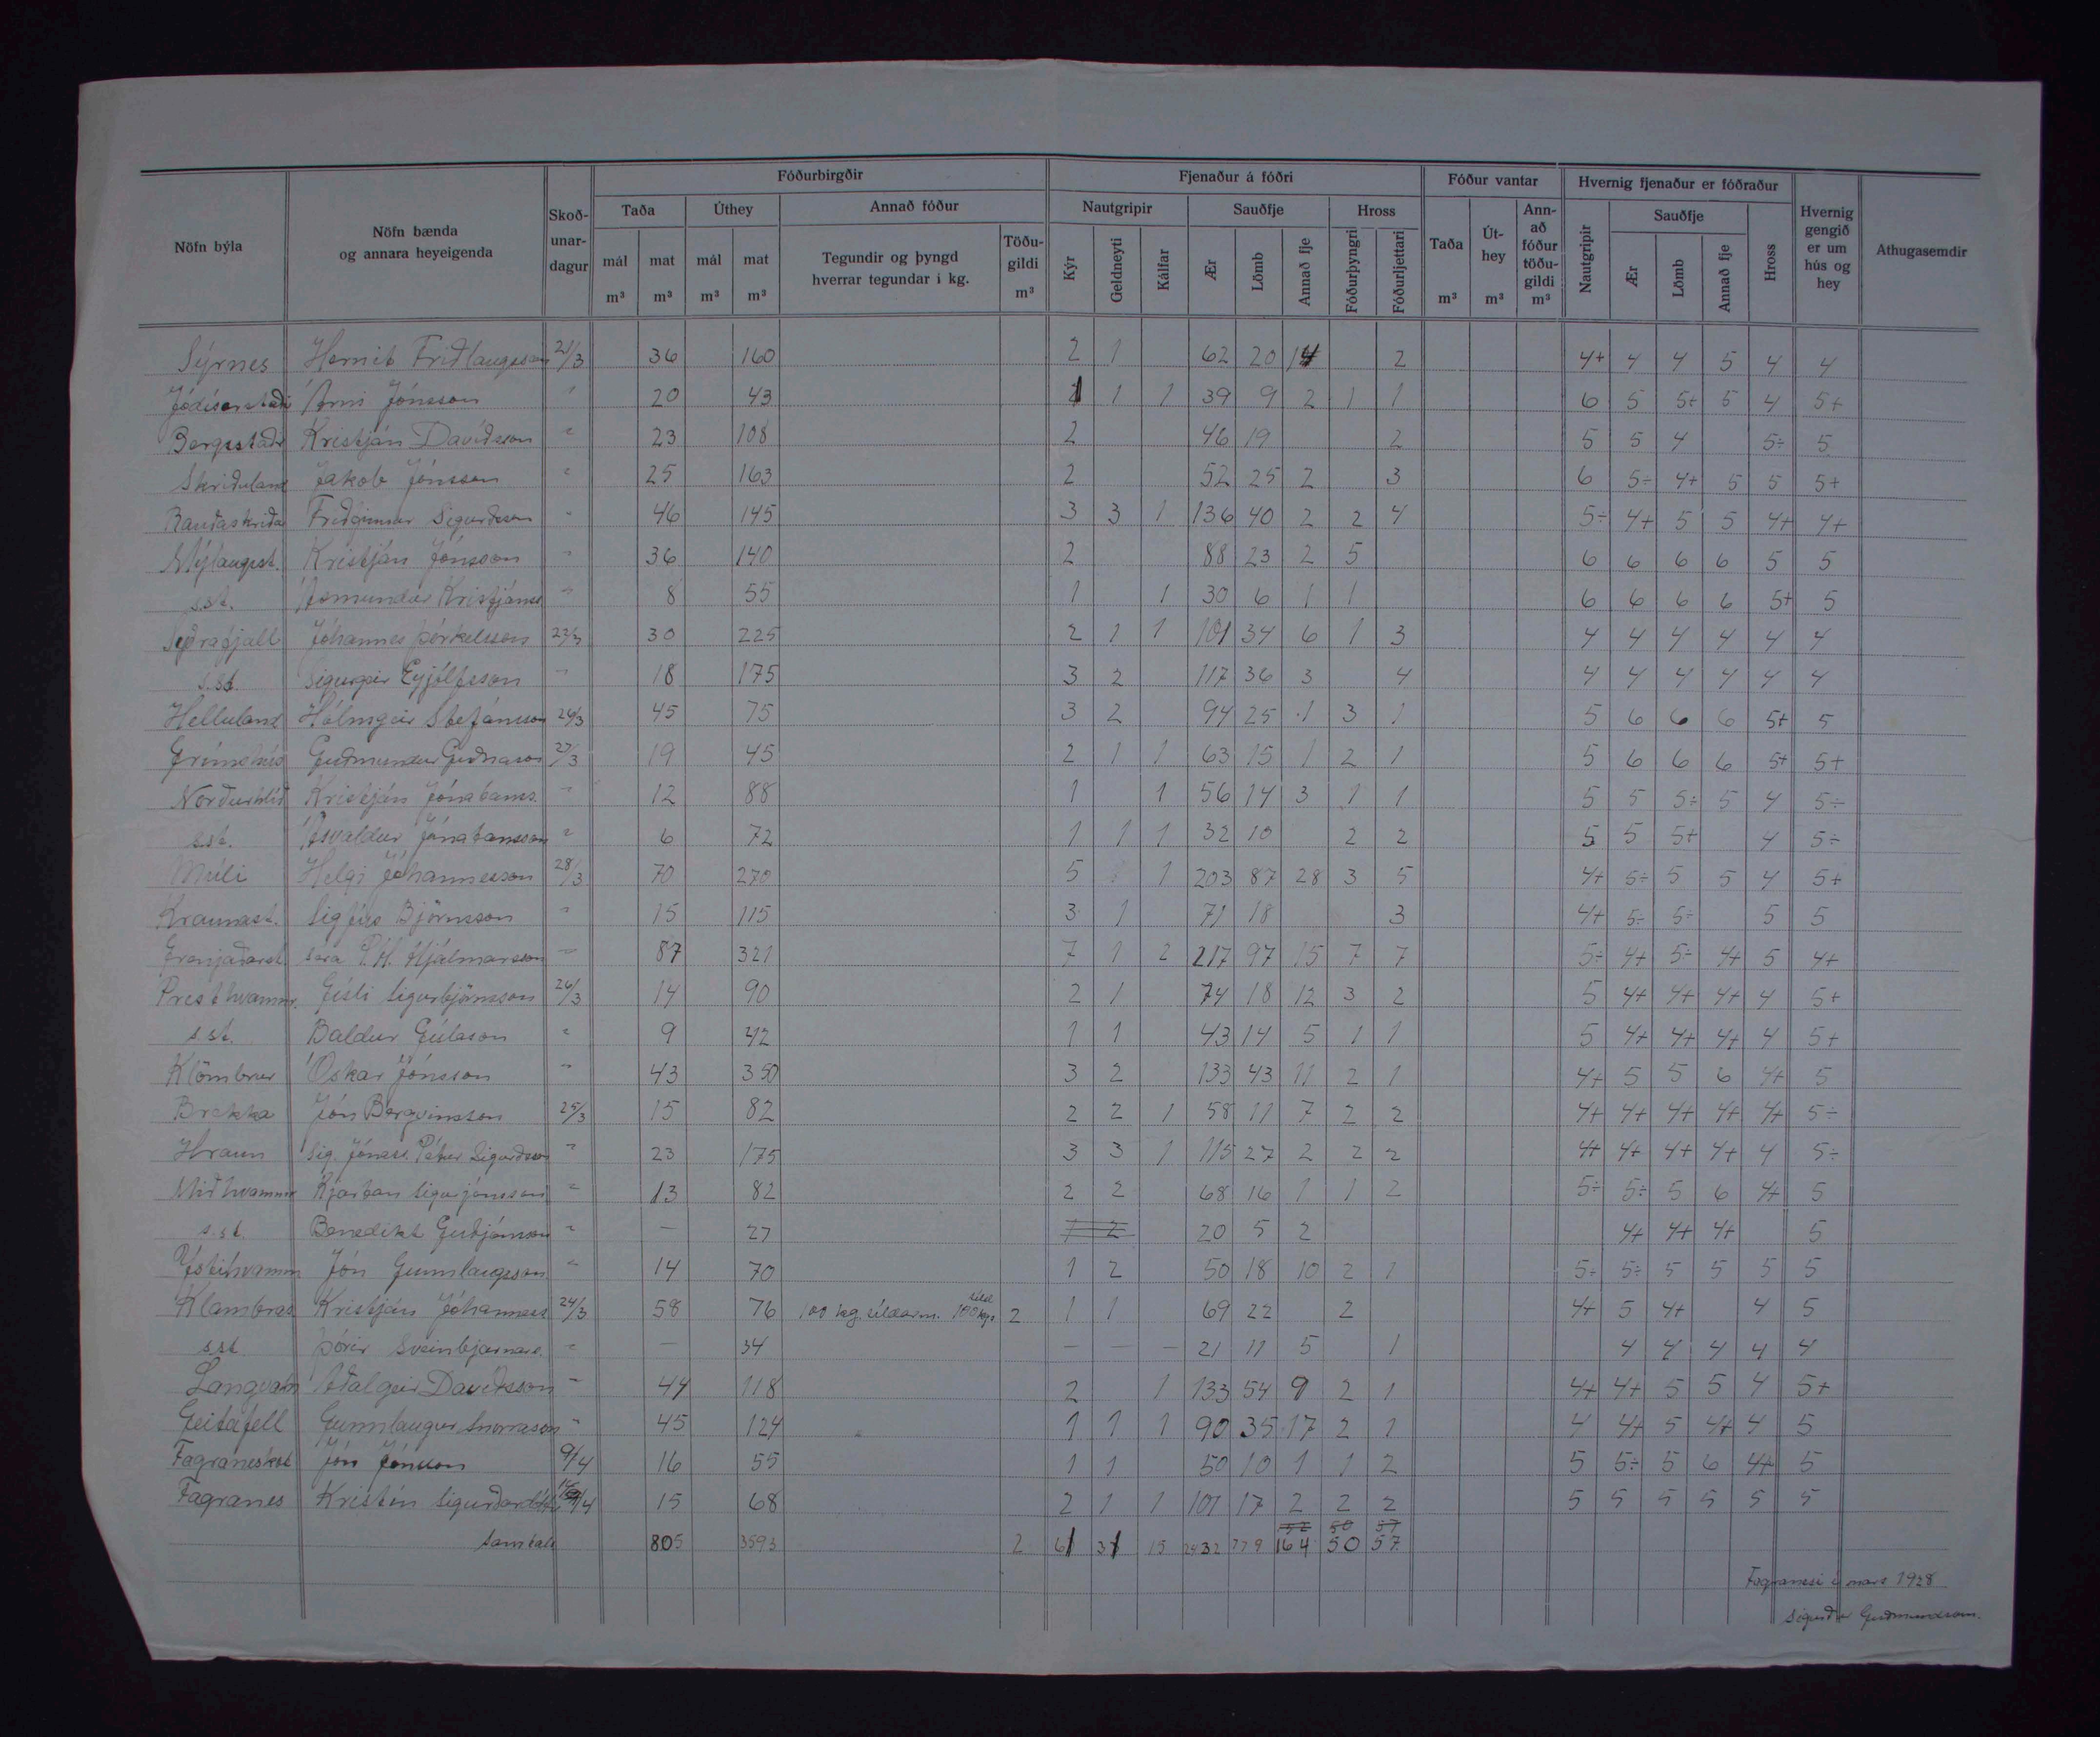 Nöfn býla | Nöfn bænda og annara heyeigenda | Skoð-unar-dagur | Fóðurbirgðir | Fjenaður á fóðri | Fóður vantar | Hvernig fjenaður er fóðraður | Hvernig gengið er um hús og hey | Athugasemdir
Taða | Úthey | Annað fóður | Nautgripir | Sauðfje | Hross | Taða m³ | Út-hey m³ | Ann-að fóður töðu-gildi m³ | Nautgripir | Sauðfje | Hross
mál m³ | mat m³ | mál m³ | mat m³ | Tegundir og þyngd hverrar tegundar í kg. | Töðu-gildi m³ | Kýr | Geldneyti | Kálfar | Ær | Lömb | Annað fje | Fóðurþyngri | Fóðurljettari | Ær | Lömb | Annað fje
Sýrnes | Hernit Friðlaugsson | 21/3 | 36 | 160 | 2 | 1 | 62 | 20 | 14 | 2 | 4+ | 4 | 4 | 5 | 4 | 4
Jódísarstaði | Árni Jónsson | " | 20 | 43 | 1 | 1 | 1 | 39 | 9 | 2 | 1 | 1 | 6 | 5 | 5+ | 5 | 4 | 5+
Bergsstaðir | Kristján Davíðsson | " | 23 | 108 | 2 | 46 | 19 | 2 | 5 | 5 | 4 | 5÷ | 5
Skriðuland | Jakob Jónsson | " | 25 | 163 | 2 | 52 | 25 | 2 | 3 | 6 | 5÷ | 4+ | 5 | 5 | 5+
Rauðaskriða | Friðfinnur Sigurðsson | " | 46 | 145 | 3 | 3 | 1 | 136 | 40 | 2 | 2 | 4 | 5÷ | 4+ | 5 | 5 | 4+ | 4+
Mýlaugsst. | Kristján Jónsson | " | 36 | 140 | 2 | 88 | 23 | 2 | 5 | 6 | 6 | 6 | 6 | 5 | 5
s.st. | Ásmundur Kristjánss | " | 8 | 55 | 1 | 1 | 30 | 6 | 1 | 1 | 6 | 6 | 6 | 6 | 5+ | 5
Syðrafjall | Jóhannes Þórkelsson | 23/3 | 30 | 225 | 2 | 1 | 1 | 101 | 34 | 6 | 1 | 3 | 4 | 4 | 4 | 4 | 4 | 4
s.st. | Sigurgeir Eyjólfsson | " | 18 | 175 | 3 | 2 | 117 | 36 | 3 | 4 | 4 | 4 | 4 | 4 | 4 | 4
Helluland | Hólmgeir Stefánsson | 24/3 | 45 | 75 | 3 | 2 | 94 | 25 | 1 | 3 | 1 | 5 | 6 | 6 | 6 | 5+ | 5
Grímshús | Guðmundur Guðnason | 27/3 | 19 | 45 | 2 | 1 | 1 | 63 | 15 | 1 | 2 | 1 | 5 | 6 | 6 | 6 | 5+ | 5+
Norðurhlíð | Kristján Jónatans. | " | 12 | 88 | 1 | 1 | 56 | 14 | 3 | 1 | 1 | 5 | 5 | 5÷ | 5 | 4 | 5÷
s.st. | Ásvaldur Jónatansson | " | 6 | 72 | 1 | 1 | 1 | 32 | 10 | 2 | 2 | 5 | 5 | 5+ | 4 | 5÷
Múli | Helgi Jóhannesson | 28/3 | 70 | 270 | 5 | 1 | 203 | 87 | 28 | 3 | 5 | 4+ | 5÷ | 5 | 5 | 4 | 5+
Kraunast. | Sigfús Björnsson | " | 15 | 115 | 3 | 1 | 71 | 18 | 3 | 4+ | 5÷ | 5÷ | 5 | 5
Grenjaðarst. | séra Þ. H. Hjálmarsson | " | 87 | 321 | 7 | 1 | 2 | 217 | 97 | 15 | 7 | 7 | 5÷ | 4+ | 5÷ | 4+ | 5 | 4+
Presthvammr. | Gísli Sigurbjörnsson | 26/3 | 14 | 90 | 2 | 1 | 74 | 18 | 12 | 3 | 2 | 5 | 4+ | 4+ | 4+ | 4 | 5+
s.st. | Baldur Gíslason | " | 9 | 42 | 1 | 1 | 43 | 14 | 5 | 1 | 1 | 5 | 4+ | 4+ | 4+ | 4 | 5+
Klömbrur | Óskar Jónsson | " | 43 | 350 | 3 | 2 | 133 | 43 | 11 | 2 | 1 | 4+ | 5 | 5 | 6 | 4+ | 5
Brekka | Jón Bergvinsson | 25/3 | 15 | 82 | 2 | 2 | 1 | 58 | 11 | 7 | 2 | 2 | 4+ | 4+ | 4+ | 4+ | 4+ | 5÷
Hraun | Sig. Jónass. Pétur Sigurðsson | " | 23 | 175 | 3 | 3 | 1 | 115 | 27 | 2 | 2 | 2 | 4+ | 4+ | 4+ | 4+ | 4 | 5÷
Miðhvammur | Kjartan Sigurjónsson | " | 13 | 82 | 2 | 2 | 68 | 16 | 1 | 1 | 2 | 5÷ | 5÷ | 5 | 6 | 4+ | 5
s.st. | Benedikt Guðjónsson | " | — | 27 | 1 | 2 | 20 | 5 | 2 | 4+ | 4+ | 4+ | 5
Ystihvamm | Jón Gunnlaugsson | " | 14 | 70 | 1 | 2 | 50 | 18 | 10 | 2 | 1 | 5÷ | 5÷ | 5 | 5 | 5 | 5
Klambras. | Kristján Jóhanness | 24/3 | 58 | 76 | 100 kg síldarm. síld 100 kgs | 2 | 1 | 1 | 69 | 22 | 2 | 4+ | 5 | 4+ | 4 | 5
s.st. | Þórir Sveinbjarnars. | " | — | 34 | — | — | — | 21 | 11 | 5 | 1 | 4 | 4 | 4 | 4 | 4
Langvatn | Aðalgeir Davíðsson | " | 44 | 118 | 2 | 1 | 133 | 54 | 9 | 2 | 1 | 4+ | 4+ | 5 | 5 | 4 | 5+
Geitafell | Gunnlaugur Snorrason | " | 45 | 124 | 1 | 1 | 1 | 90 | 35 | 17 | 2 | 1 | 4 | 4+ | 5 | 4+ | 4 | 5
Fagraneskot | Jón Jónsson | 9/4 | 16 | 55 | 1 | 1 | 50 | 10 | 1 | 1 | 2 | 5 | 5÷ | 5 | 6 | 4+ | 5
Fagranes | Kristín Sigurðard. | 15 | 68 | 2 | 1 | 1 | 101 | 17 | 2 | 2 | 2 | 5 | 5 | 5 | 5 | 5 | 5
50 | 57
Samtals | 805 | 3593 | 2 | 61 | 31 | 15 | 2432 | 779 | 164 | 50 | 57
Fagranesi í mars 1928
Sigurður Guðmundsson.